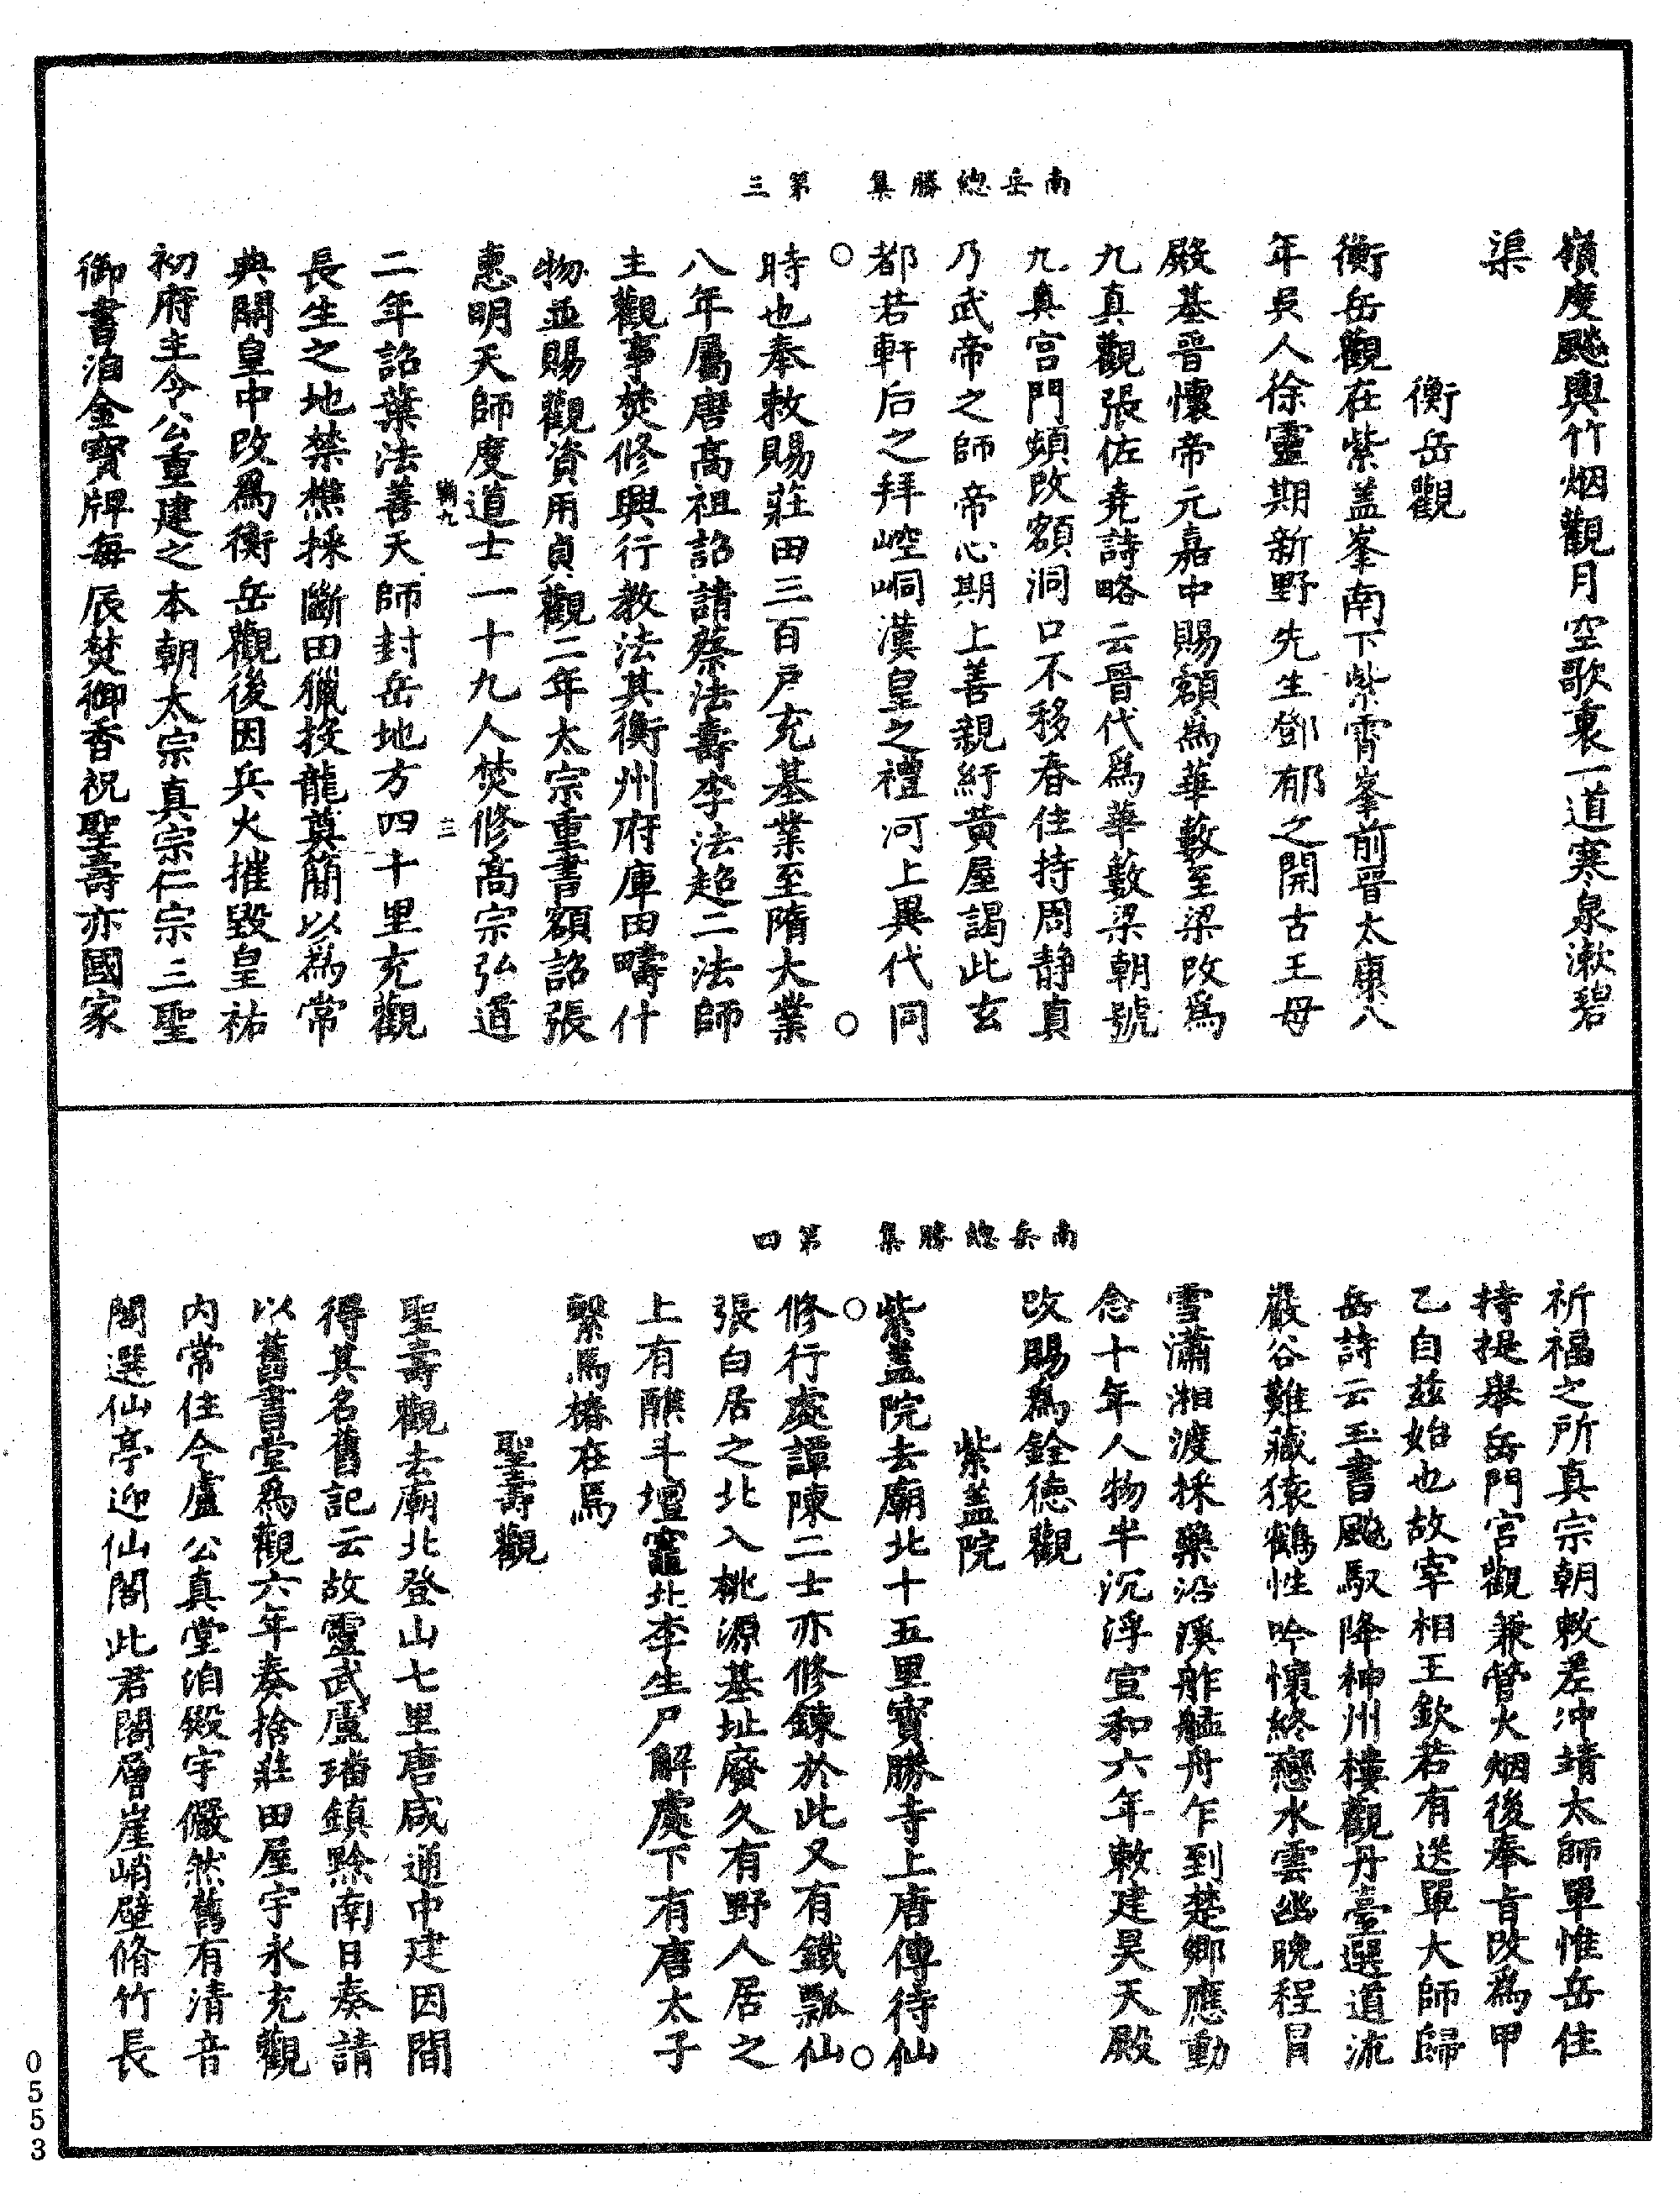 南岳總勝集　第三
嶺度飈輿竹烟觀月空歌裏一道寒泉漱碧
渠
衡岳觀
衡岳觀在紫蓋峯南下紫霄峯前晉太康八
年吳人徐靈期新野先生鄧郁之開古王母
殿基晉懷帝元嘉中賜額為華藪至梁改爲
九真觀張佐堯詩略云晉代爲華藪梁朝號
九真宮門頻改額洞口不移春住持周靜真
乃武帝之師帝心期上善親紆黃屋謁此玄
都若軒后之拜崆峒漢皇之禮河上異代同
時也奉敕賜莊田三百戶充基業至隋大業
八年屬唐高祖詔請蔡法壽李法超二法師
主觀事焚修興行教法其衡州府庫田疇什
物並賜觀資用貞觀二年太宗重書額詔張
惠明天師度道士一十九人焚修高宗弘道
二年詔葉法善天師封岳地方四十里充觀
長生之地禁樵採斷田獵投龍奠簡以爲常
典開皇中改爲衡岳觀後因兵火摧毀皇祐
初府主令公重建之本朝太宗真宗仁宗三聖
御書洎金寶牌每辰焚御香祝聖壽亦國家
南岳總勝集　第四
祈福之所真宗朝敕差沖靖太師單惟岳住
持提舉岳門宮觀兼管火烟後奉旨改爲甲
乙自茲始也故宰相王欽若有送單大師歸
岳詩云玉書飈馭降神州樓觀丹臺選道流
巖谷難藏猿鶴性吟懷終戀水雲幽晚程冒
雪瀟湘渡採藥沿溪舴艋舟乍到楚鄉應動
念十年人物半沉浮宣和六年敕建昊天殿
改賜爲銓德觀
紫蓋院
紫蓋院去廟北十五里寶勝寺上唐傅待仙
修行處譚陳二士亦修鍊於此又有鐵瓢仙
張白居之北入桃源基址廢久有野人居之
上有醮斗壇竈北李生尸解處下有唐太子
繫馬樁在焉
聖壽觀
聖壽觀去廟北登山七里唐咸通中建因間
得其名舊記云故靈武盧璠鎮黔南日奏請
以舊書堂爲觀六年奏捨莊田屋宇永充觀
內常住今盧公真堂洎殿宇儼然舊有清音
閣選仙亭迎仙閣此君閣層崖峭壁脩竹長
0553